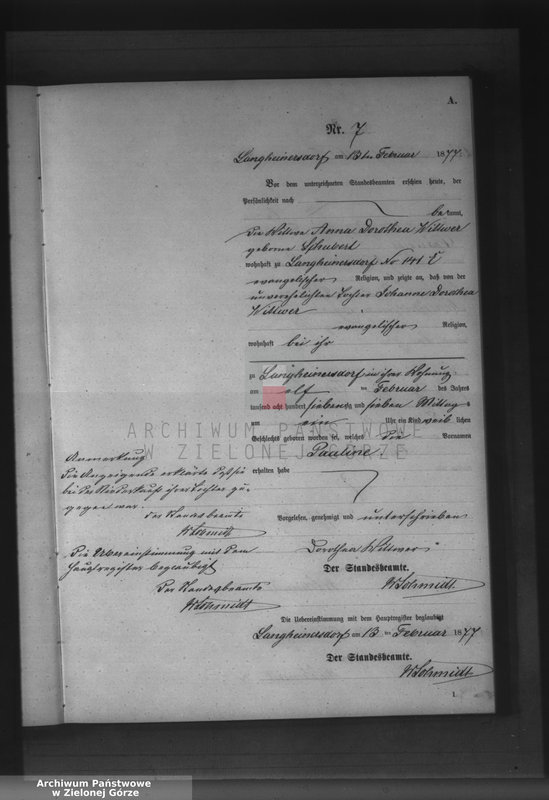 A.
Nr. 7
Langheinersdorf am 13ten Februar 1877.
Vor dem unterzeichneten Standesbeamten erschien heute, der
Persönlichkeit nach
bekannt,
die Wittwe Anna Dorothea Wittwer
geborne Schubert
wohnhaft zu Langheinersdorf No 141
evangelischer Religion, und zeigte an, daß von der
unverehelichten Tochter Johanne Dorothea
Wittwer
evangelischer Religion,
wohnhaft bei ihr
zu Langheinersdorf in ihrer Wohnung
am elf ten Februar des Jahres
tausend acht hundert siebenzig und sieben Mittags
um ein Uhr ein Kind weiblichen
Geschlechts geboren worden sei, welches die Vornamen
Pauline
erhalten habe
Anmerkung
Die Anzeigende erklärte daß sie
bei der Niederkunft ihrer Tochter zu-
gegen war.
Der Standesbeamte
W Schmidt
Die Übereinstimmung mit dem
Hauptregister beglaubigt
Der Standesbeamte
W Schmidt
Vorgelesen, genehmigt und unterschrieben
Dorothea Wittwer
Der Standesbeamte.
W Schmidt
Die Uebereinstimmung mit dem Hauptregister beglaubigt
Langheinersdorf am 13 ten Februar 1877
Der Standesbeamte.
W Schmidt
1.
ARCHIWUM PAŃSTWOWE
W ZIELONEJ GÓRZE
Archiwum Państwowe
w Zielonej Górze